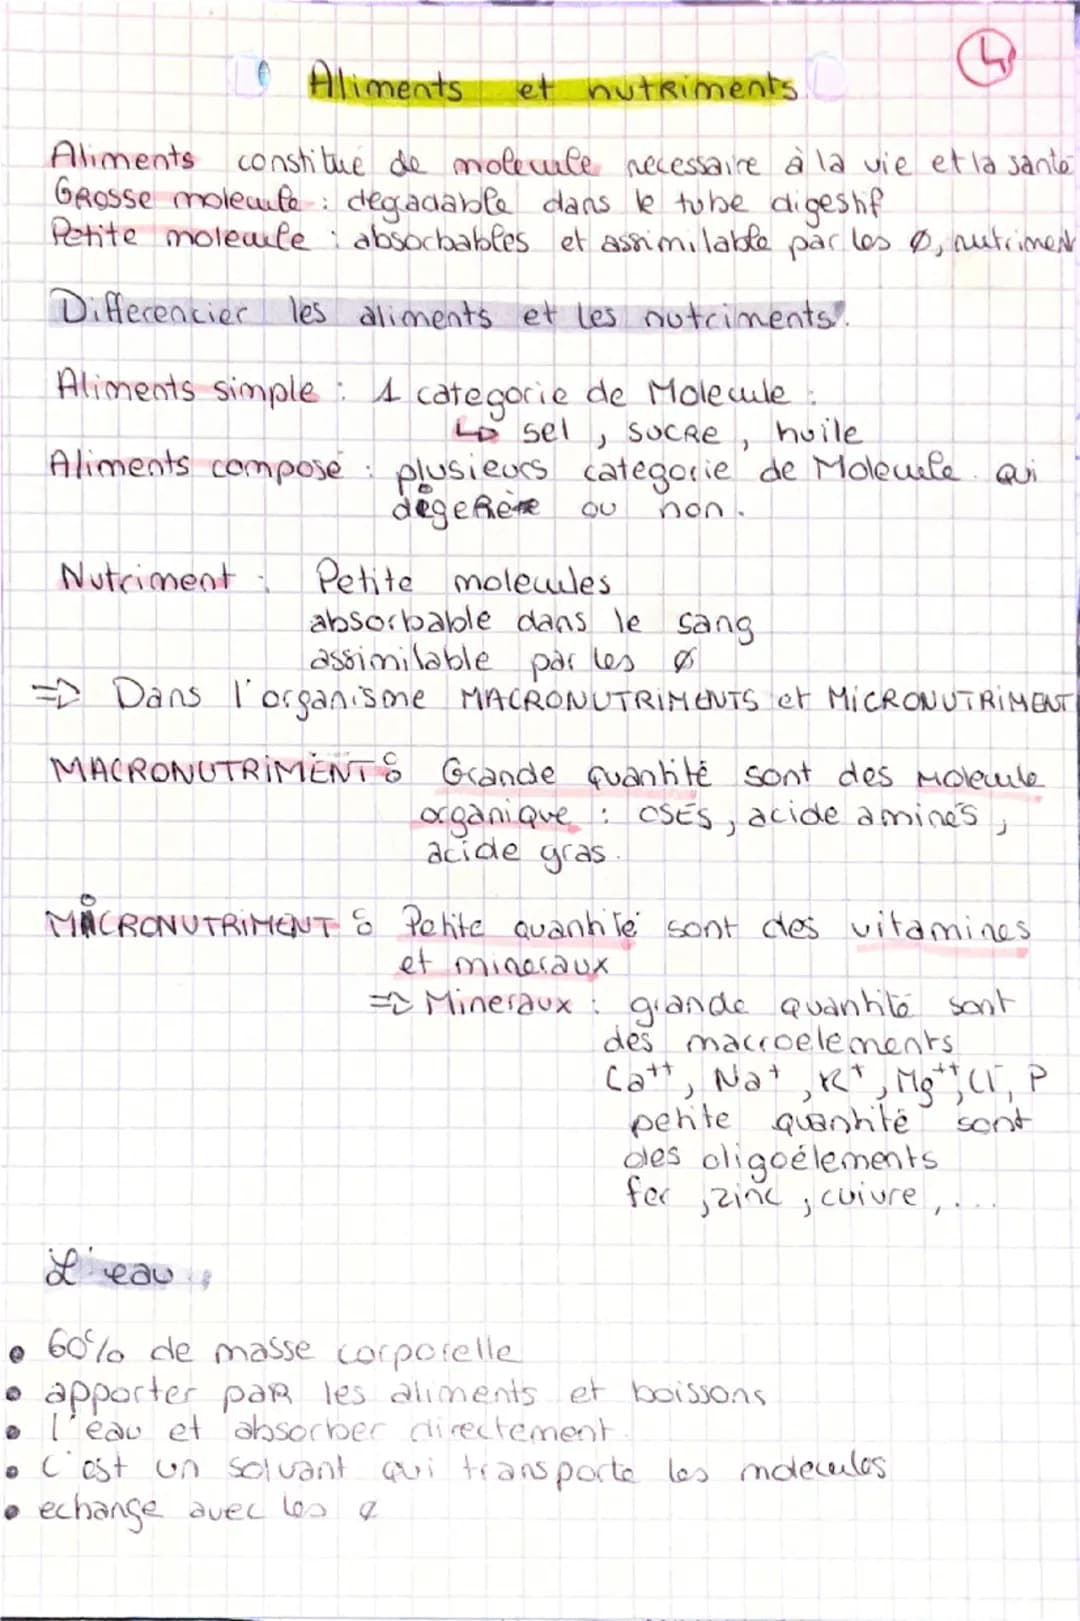 4
Aliments et nutriments
Aliments constitué de molecule necessaire à la vie et la santé
Grosse molecule : degadable dans le tube digestif
Petite molecule : absorbables et assimilable par les ø, nutriment
Differencier les aliments et les nutriments.
Aliments simple : 1 categorie de Molecule :
↳ sel, sucre, huile
Aliments composé : plusieurs categorie de Molecule qui
ou non.
Nutriment : Petite molecules
absorbable dans le sang
assimilable par les ø
=> Dans l'organisme MACRONUTRIMENTS et MiCRONUTRiMENT
MACRONUTRiMENTS Grande quantité sont des Molecule
organique : OSES, acide aminés,
acide gras.
MiCRONUTRiMENT : Petite quantité sont des vitamines
et mineraux
=> Mineraux : grande quantité sont
des macroelements
Ca++, Na+, K+, Mg++, Cl-, P
petite quantité sont
des oligoélements
fer, zinc, cuivre, ...
L'eau
• 60% de masse corporelle
• apporter par les aliments et boissons
• l'eau et absorber directement.
• C'est un solvant qui transporte les molecules
• echange avec les ø